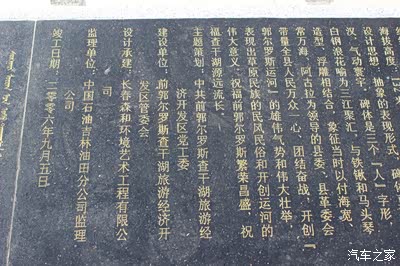 海拔高度，12米
设计思想，抽象的表现形式，碑体
汉，气动寰宇，碑体是三个「人」字形
白钢浪花喻为三江聚汇，与铁锹和马头琴
造型，浮雕相结合，象征当时以付海宽、
常万海、阿古拉为领导的县委、县革委会
带量全县人民万众一心，团结奋战，开创「
郭尔罗斯运河」的雄伟气势和伟大壮举，
表现出草原民族的民风民俗和开创运河的
伟大意义，祝福前郭尔罗斯繁荣昌盛，祝
福查干湖源远流长。
主题策划：中共前郭尔罗斯查干湖旅游经
济开发区党工委
建设单位：前郭尔罗斯查干湖旅游经济开
发区管委会
设计承建：长春森和环境艺术工程有限公
司
监理单位：中国石油吉林油田分公司监理
公司
竣工日期：二零零六年九月五日
汽车之家